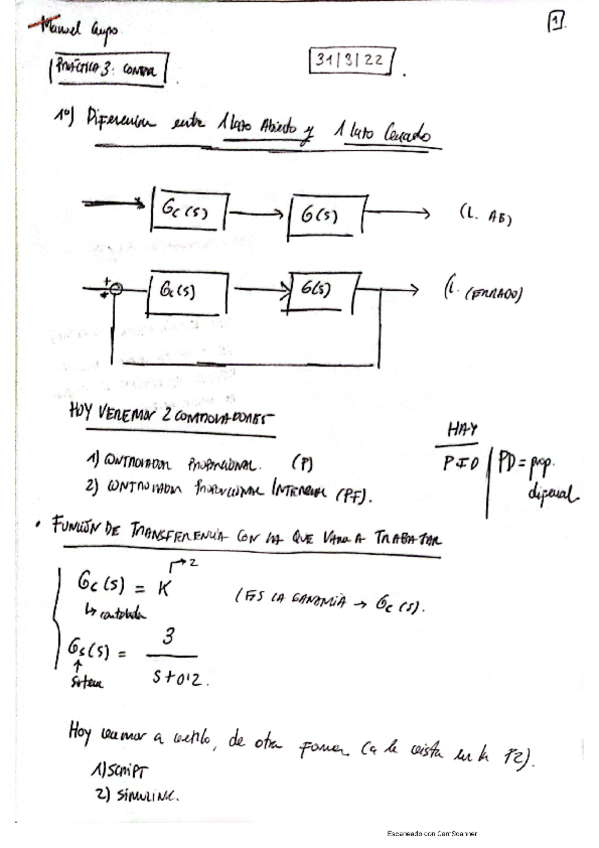 Manuel
1
PRÁCTICA 3: CONTROL
31/3/22
1º) Diferencia entre 1 lazo Abierto y 1 lazo Cerrado
Gc(s) G(s) (L. AB)
+ Gc(s) G(s) (L. CERRADO)
HOY VEREMOS 2 CONTROLADORES
HAY
1) CONTROLADOR PROPORCIONAL. (P)
PID PD = prop.
2) CONTROLADOR PROPORCIONAL INTEGRAL (PI).
• FUNCIÓN DE TRANSFERENCIA CON LA QUE VAMOS A TRABAJAR
2
Gc(s) = K (ES LA GANANCIA → Gc(s).
↳ controlador
Gs(s) = 3
s+0'2.
↑
Sistema
Hoy veremos a verlo, de otra forma (a la vista en la P2).
1) SCRIPT
2) SIMULINK.
Escaneado con CamScanner